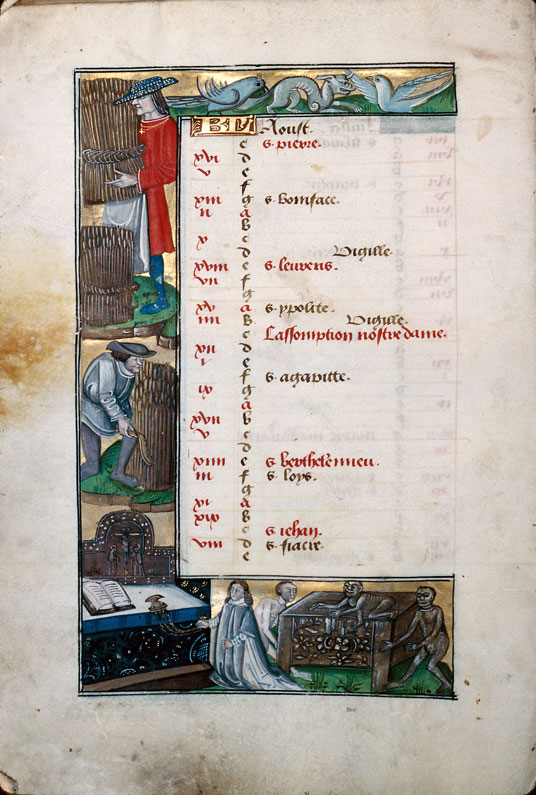 KL Aoust.
c s. pierre.
xvi d
v e
f
xiii g s. boniface.
ii a
b
x c
d Vigille
xviii e s. leurens.
vii f
g
xv a s. ypolite.
iiii b Vigille.
c Lassomption nostre dame.
xii d
i e
f s. agapitte.
ix g
a
xvii b
v c
d
xiiii e s. berthelemieu.
iii f s. loys.
g
xi a
xix b
c s. iehan.
viii d s. fiacre.
e